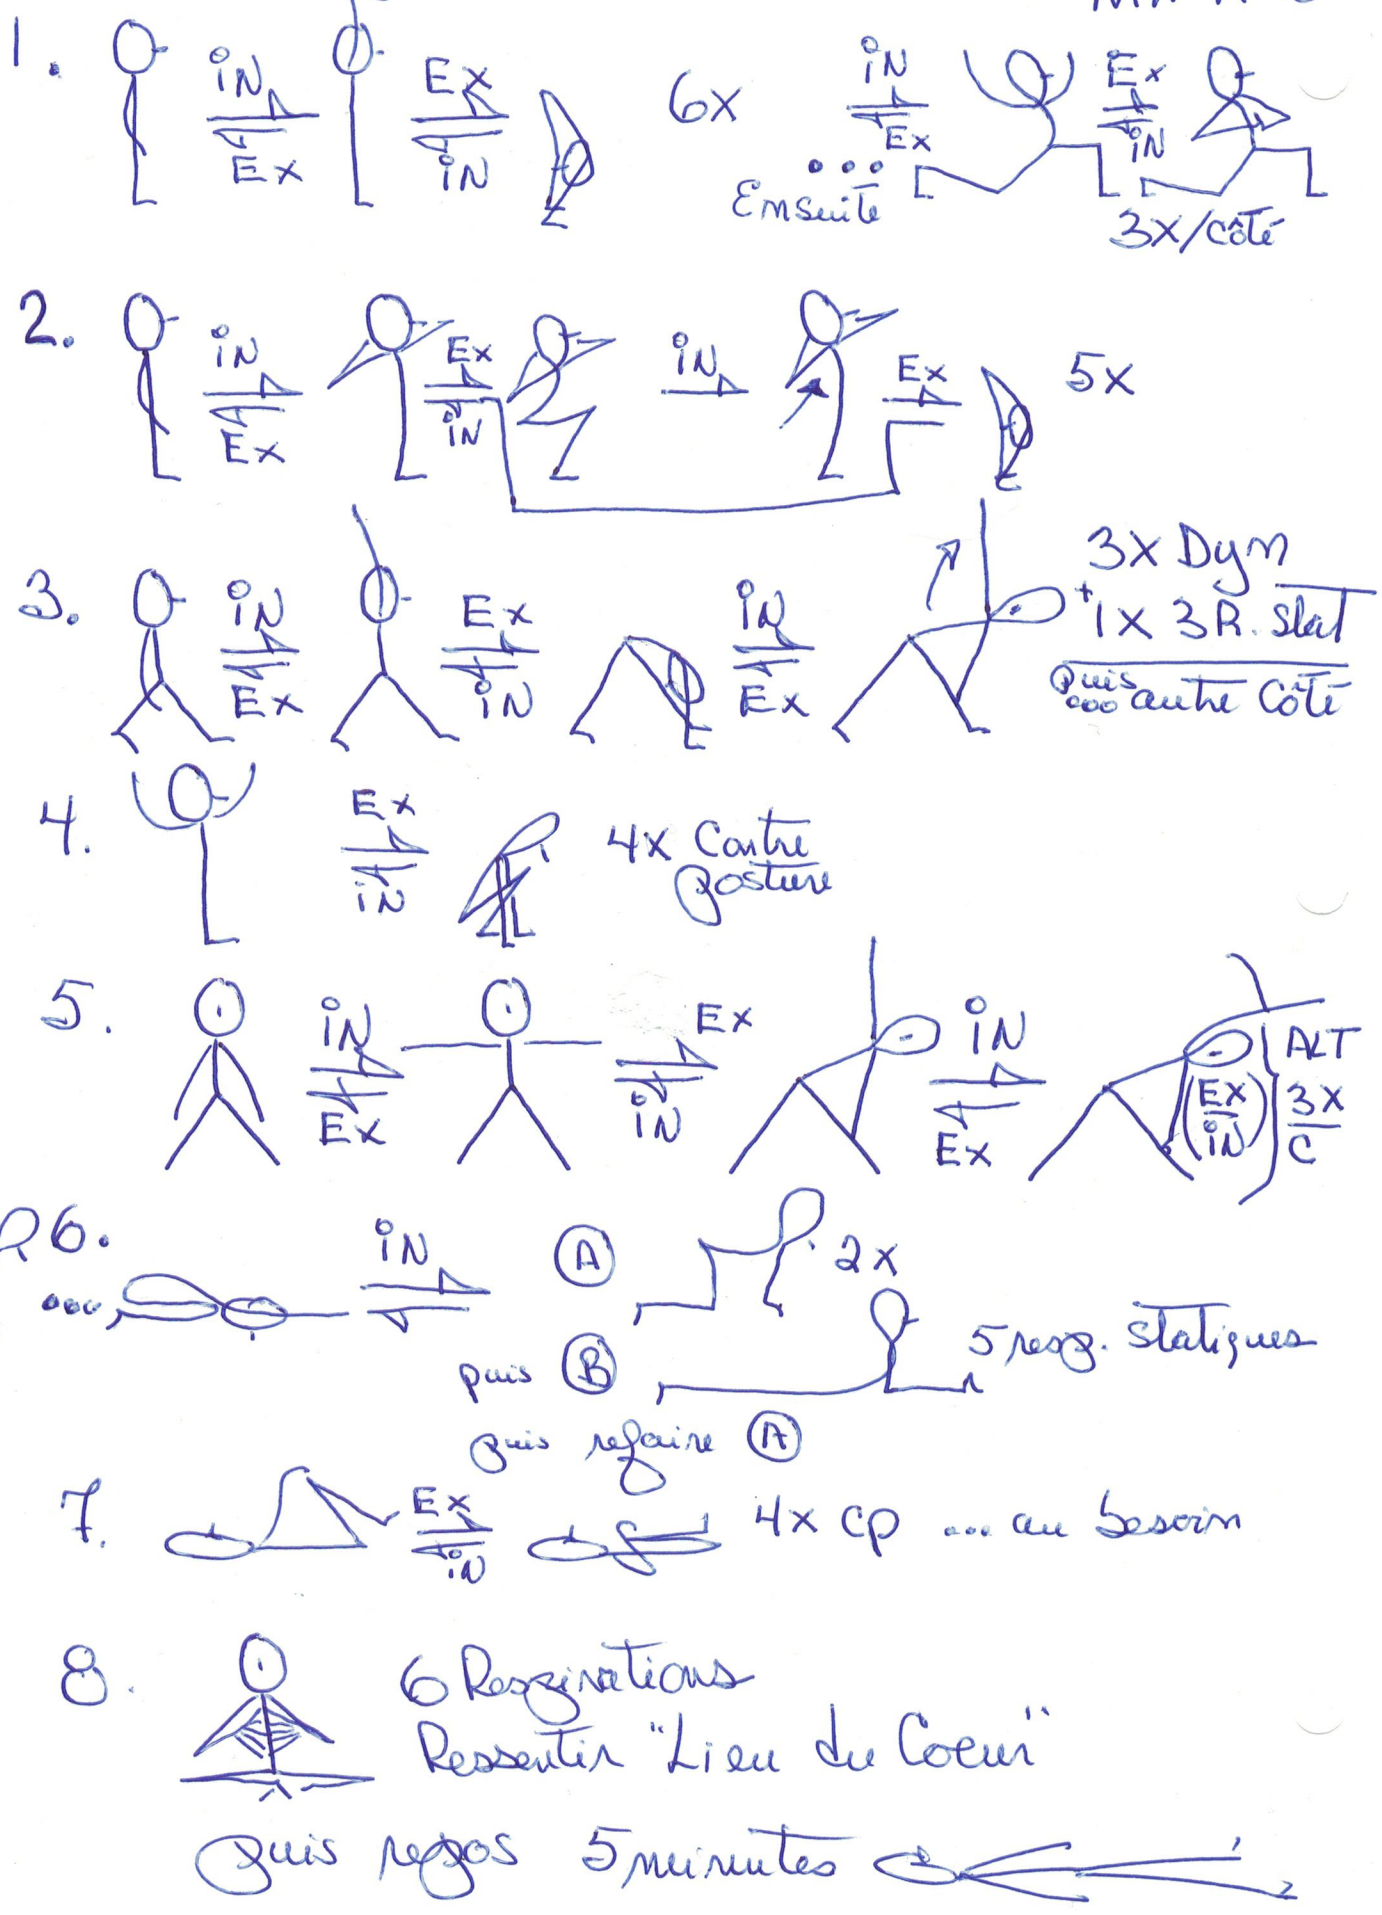 1. iN Ex Ex iN 6x iN Ex Ex iN
... Ensuite 3x/côté
2. iN Ex Ex iN iN Ex 5x
3. iN Ex Ex iN iN Ex 3x Dyn
+1x 3R. stat
puis ... autre côté
4. Ex iN 4x Contre
posture
5. iN Ex Ex iN iN Ex (Ex iN) ALT
3x
C
6. iN A 2x
...
puis B 5 resp. statiques
puis refaire A
7. Ex iN 4x cp ... au besoin
8. 6 Respirations
Ressentir "Lieu du Coeur"
puis repos 5 minutes